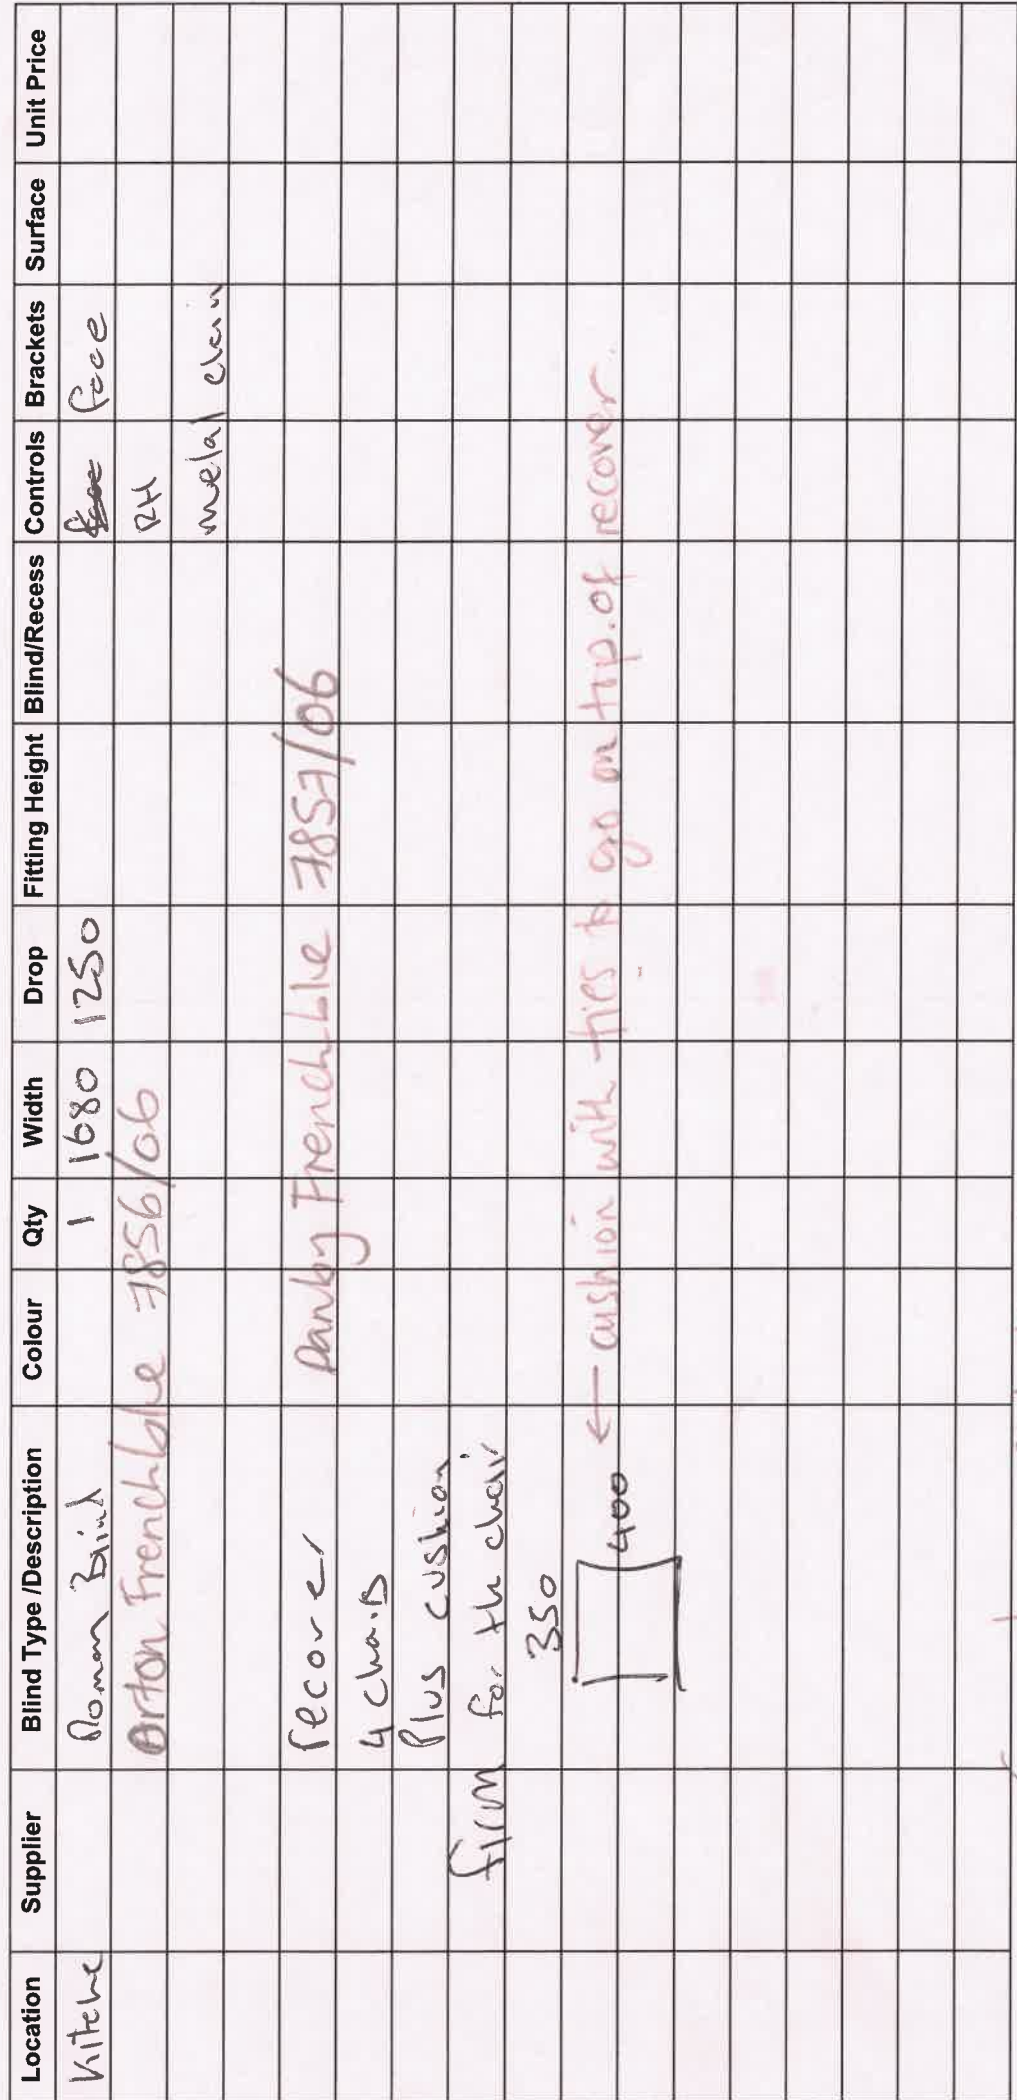 Location Supplier Blind Type /Description Colour Qty Width Drop Fitting Height Blind/Recess Controls Brackets Surface Unit Price
Kitche Roman Blind 1 1680 1250 face face
Arton Frenchblue 7856/06 RH
metal chain
recover Danby Frenchblue 7857/06
4 chairs
Plus cushion
firm for the chair
350
400 ← cushion with ties to go on top of recover.